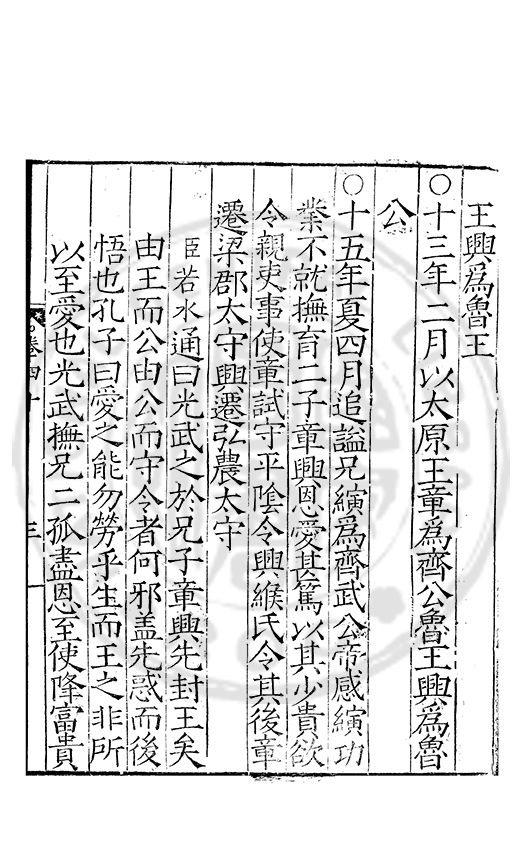 王興爲魯王
○十三年二月以太原王章爲齊公魯王興爲魯
公
○十五年夏四月追謚兄縯爲齊武公帝感縯功
業不就撫育二子章興恩愛甚篤以其少貴欲
令親吏事使章試守平陰令興緱氏令其後章
遷梁郡太守興遷弘農太守
臣若水通曰光武之於兄子章興先封王矣
由王而公由公而守令者何邪盖先惑而後
悟也孔子曰愛之能勿勞乎生而王之非所
以至愛也光武撫兄二孤盡恩至使降富貴
卷四十
三